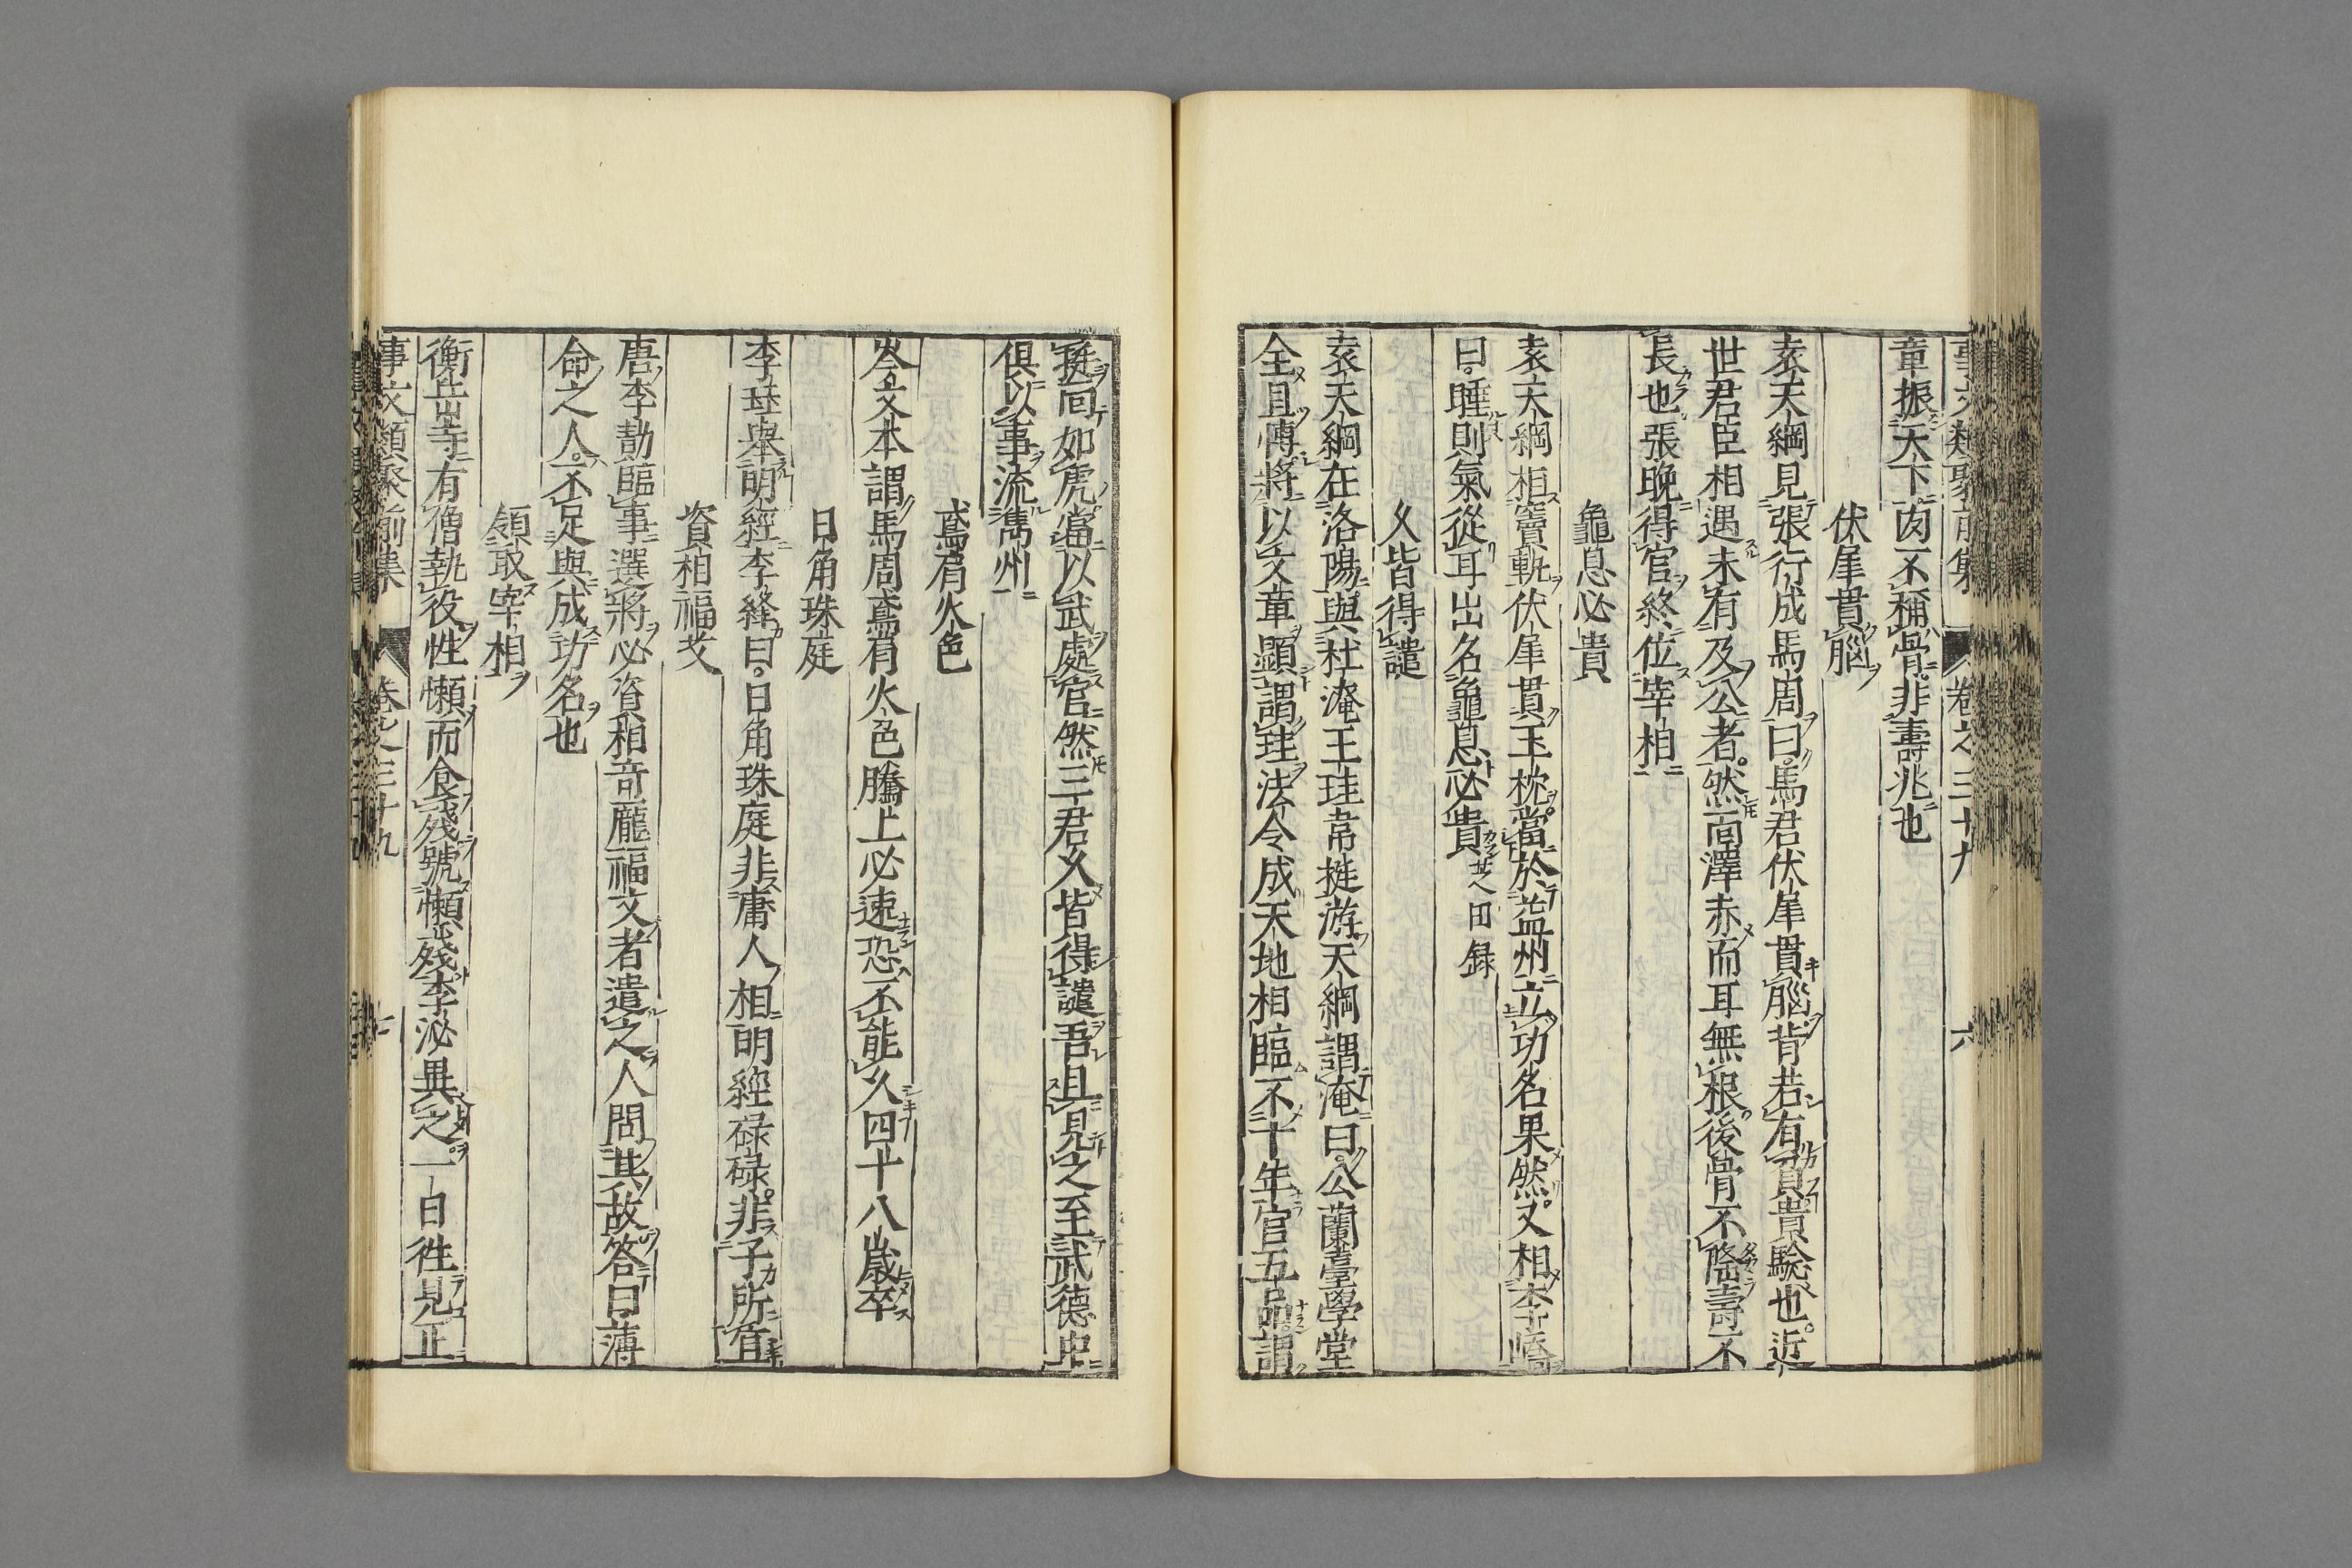 事文類聚前集 卷之三十九 六
章振天下肉不稱骨非壽兆也
伏犀貫腦
袁天綱見張行成馬周曰馬君伏犀貫腦背若有負貴驗也近
世君臣相遇未有及公者然面澤赤而耳無根後骨不隆壽不
長也張晚得官終位宰相
龜息必貴
袁天綱相竇軌伏犀貫玉枕當於益州立功名果然又相李嶠
曰睡則氣從耳出名龜息必貴芝田録
久皆得譴
袁天綱在洛陽與杜淹王珪韋挺游天綱謂淹曰公蘭臺學堂
全且博將以文章顯謂珪法令成天地相臨不十年官五品謂
挺面如虎當以武處官然三君久皆得譴吾且見之至武德中
俱以事流雋州
鳶肩火色
岑文本謂馬周鳶肩火色騰上必速恐不能久四十八歲卒
日角珠庭
李珏舉明經李絳曰日角珠庭非庸人相明經碌碌非子所宜
資相福艾
唐李勣臨事選將必資相奇龐福艾者遣之人問其故答曰薄
命之人不足與成功名也
領取宰相
衡岳寺有僧執役性懶而食殘號懶殘李泌異之一日往見正
事文類聚前集 卷之三十九